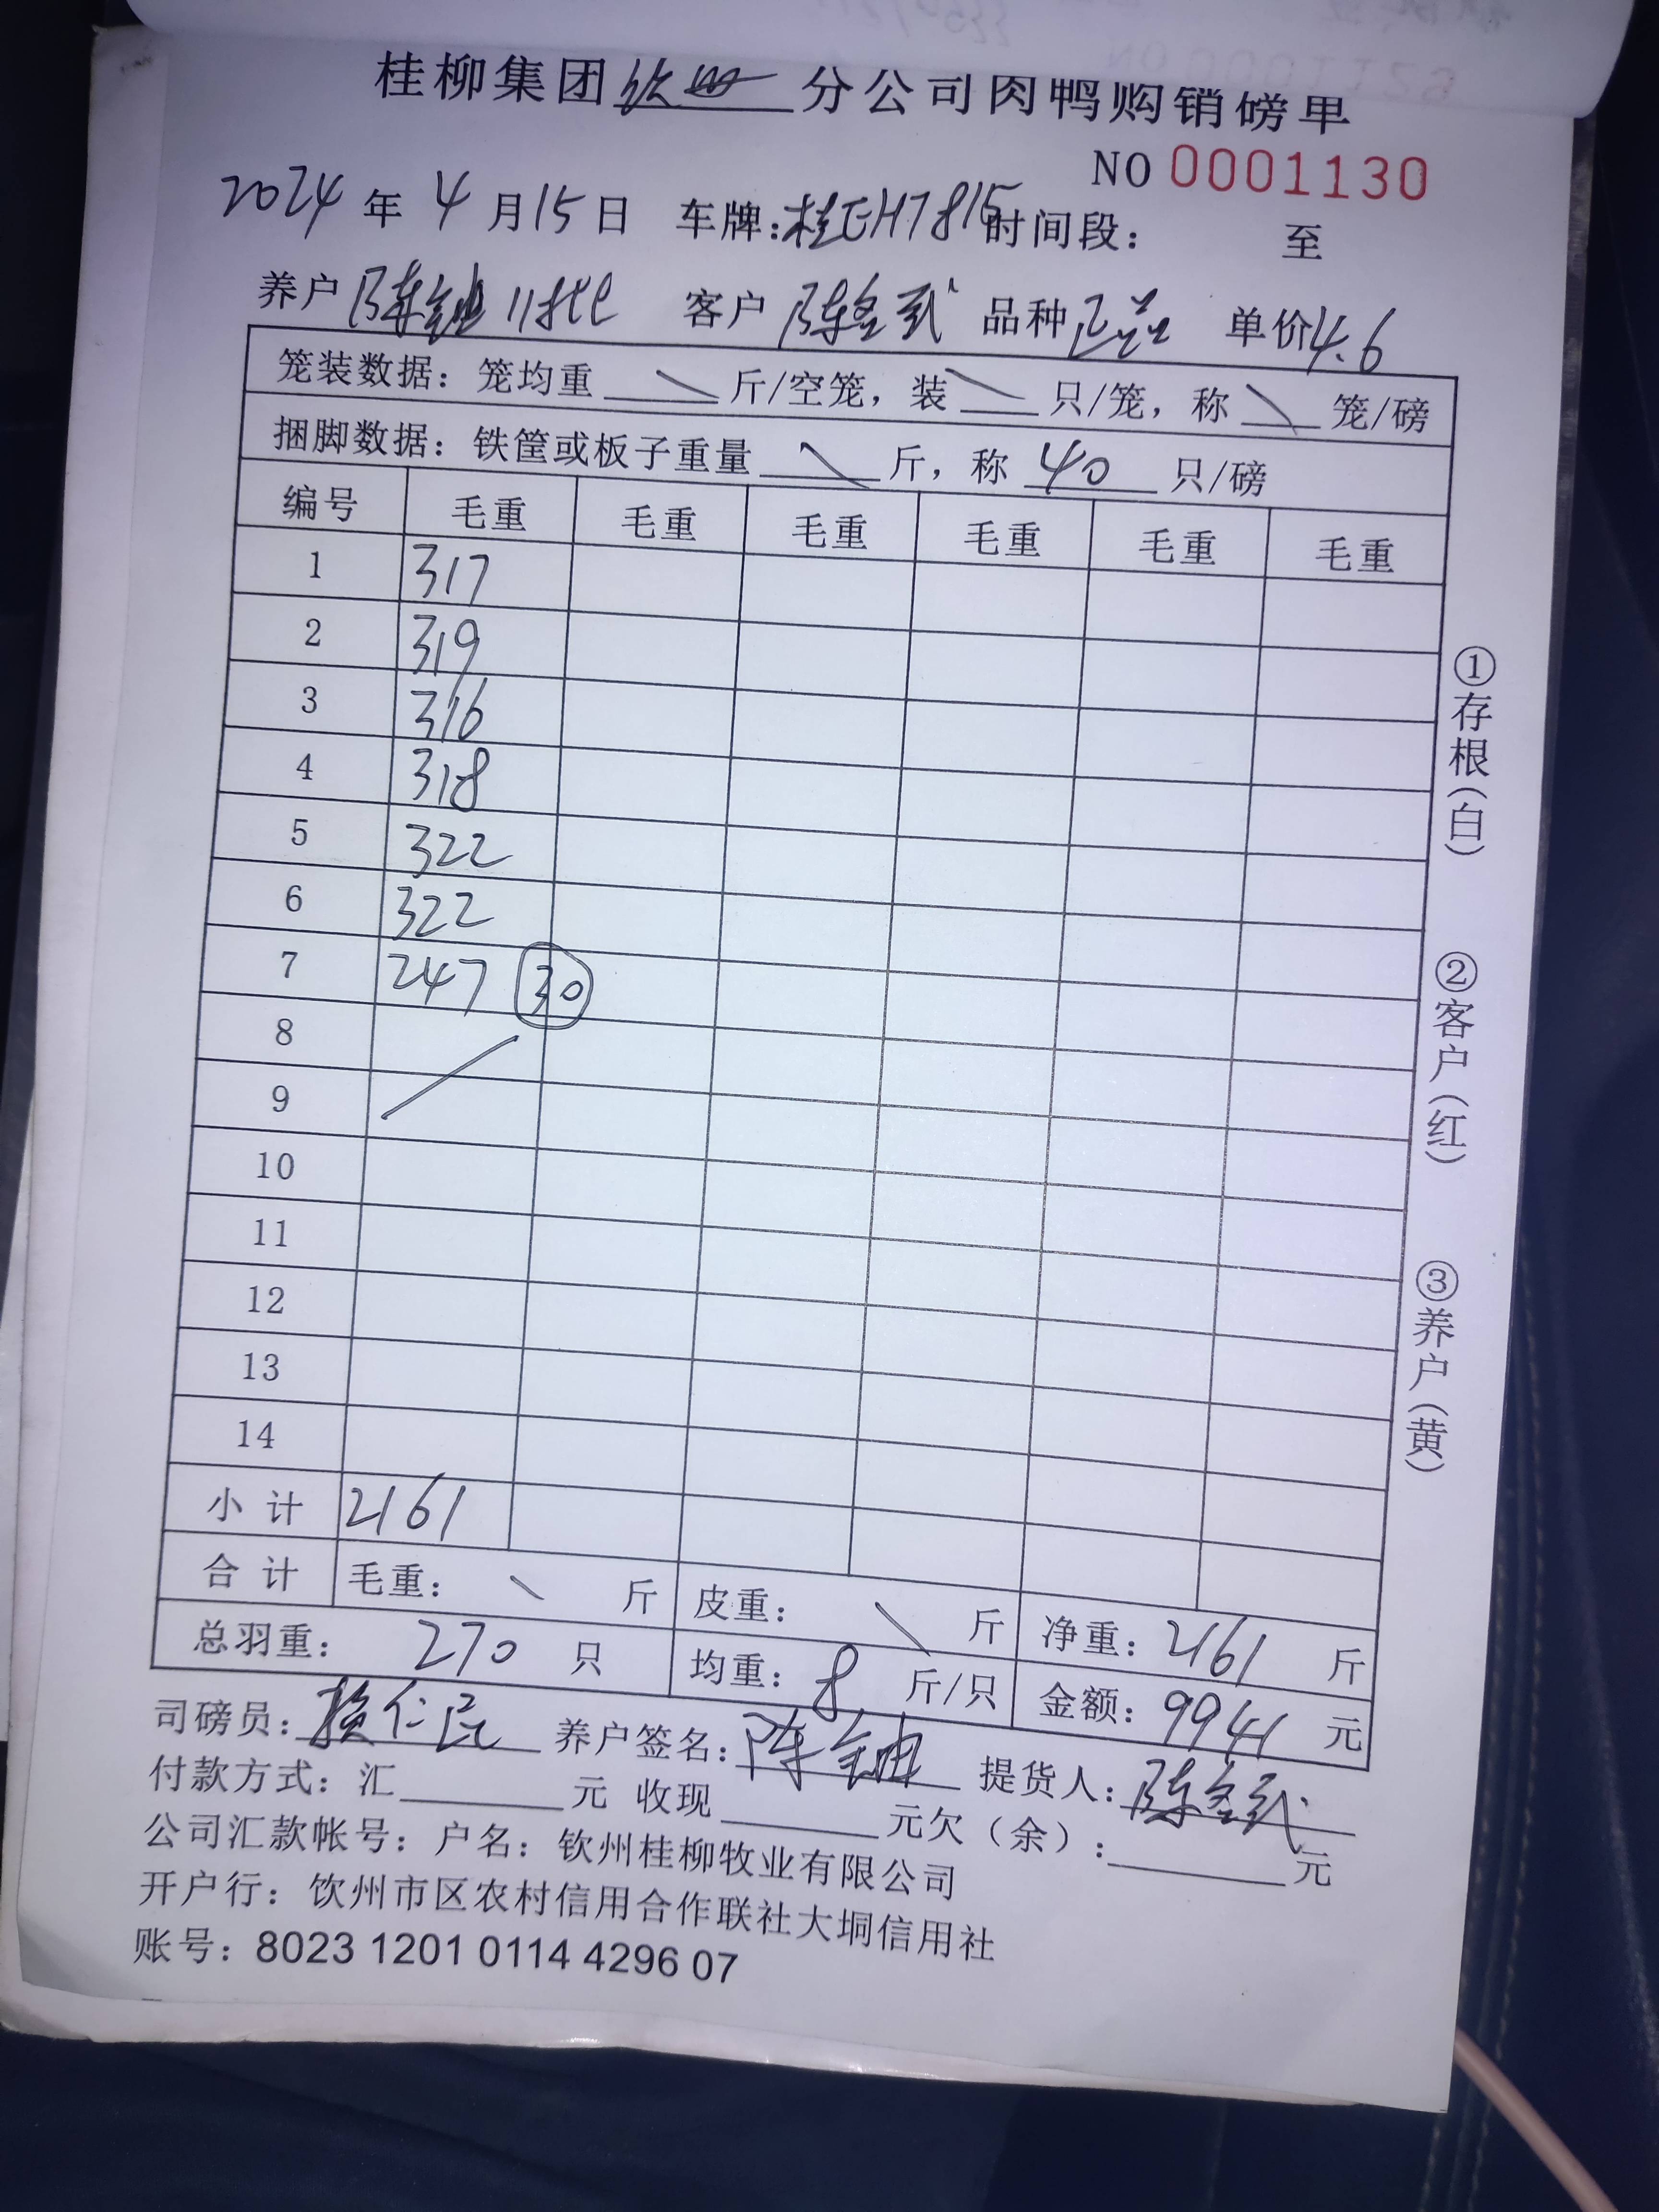 桂柳集团钦州分公司肉鸭购销磅单
NO 0001130
2024年4月15日 车牌:桂EH7815 时间段: 至
养户 陈 11批 客户 陈 品种 正品 单价 4.6
笼装数据: 笼均重 \ 斤/空笼, 装 \ 只/笼, 称 \ 笼/磅
捆脚数据: 铁筐或板子重量 \ 斤, 称 40 只/磅
编号 毛重 毛重 毛重 毛重 毛重 毛重
1 317
2 319
3 316
4 318
5 322
6 322
7 247 30
8
9
10
11
12
13
14
小计 2161
合计 毛重: \ 斤 皮重: \ 斤 净重: 2161 斤
总羽重: 270 只 均重: 8 斤/只 金额: 9941 元
司磅员: 仁 养户签名: 陈 提货人: 陈
付款方式: 汇 元 收现 元欠(余): 元
公司汇款帐号: 户名: 钦州桂柳牧业有限公司
开户行: 钦州市区农村信用合作联社大垌信用社
账号: 8023 1201 0114 4296 07
①存根(白) ②客户(红) ③养户(黄)